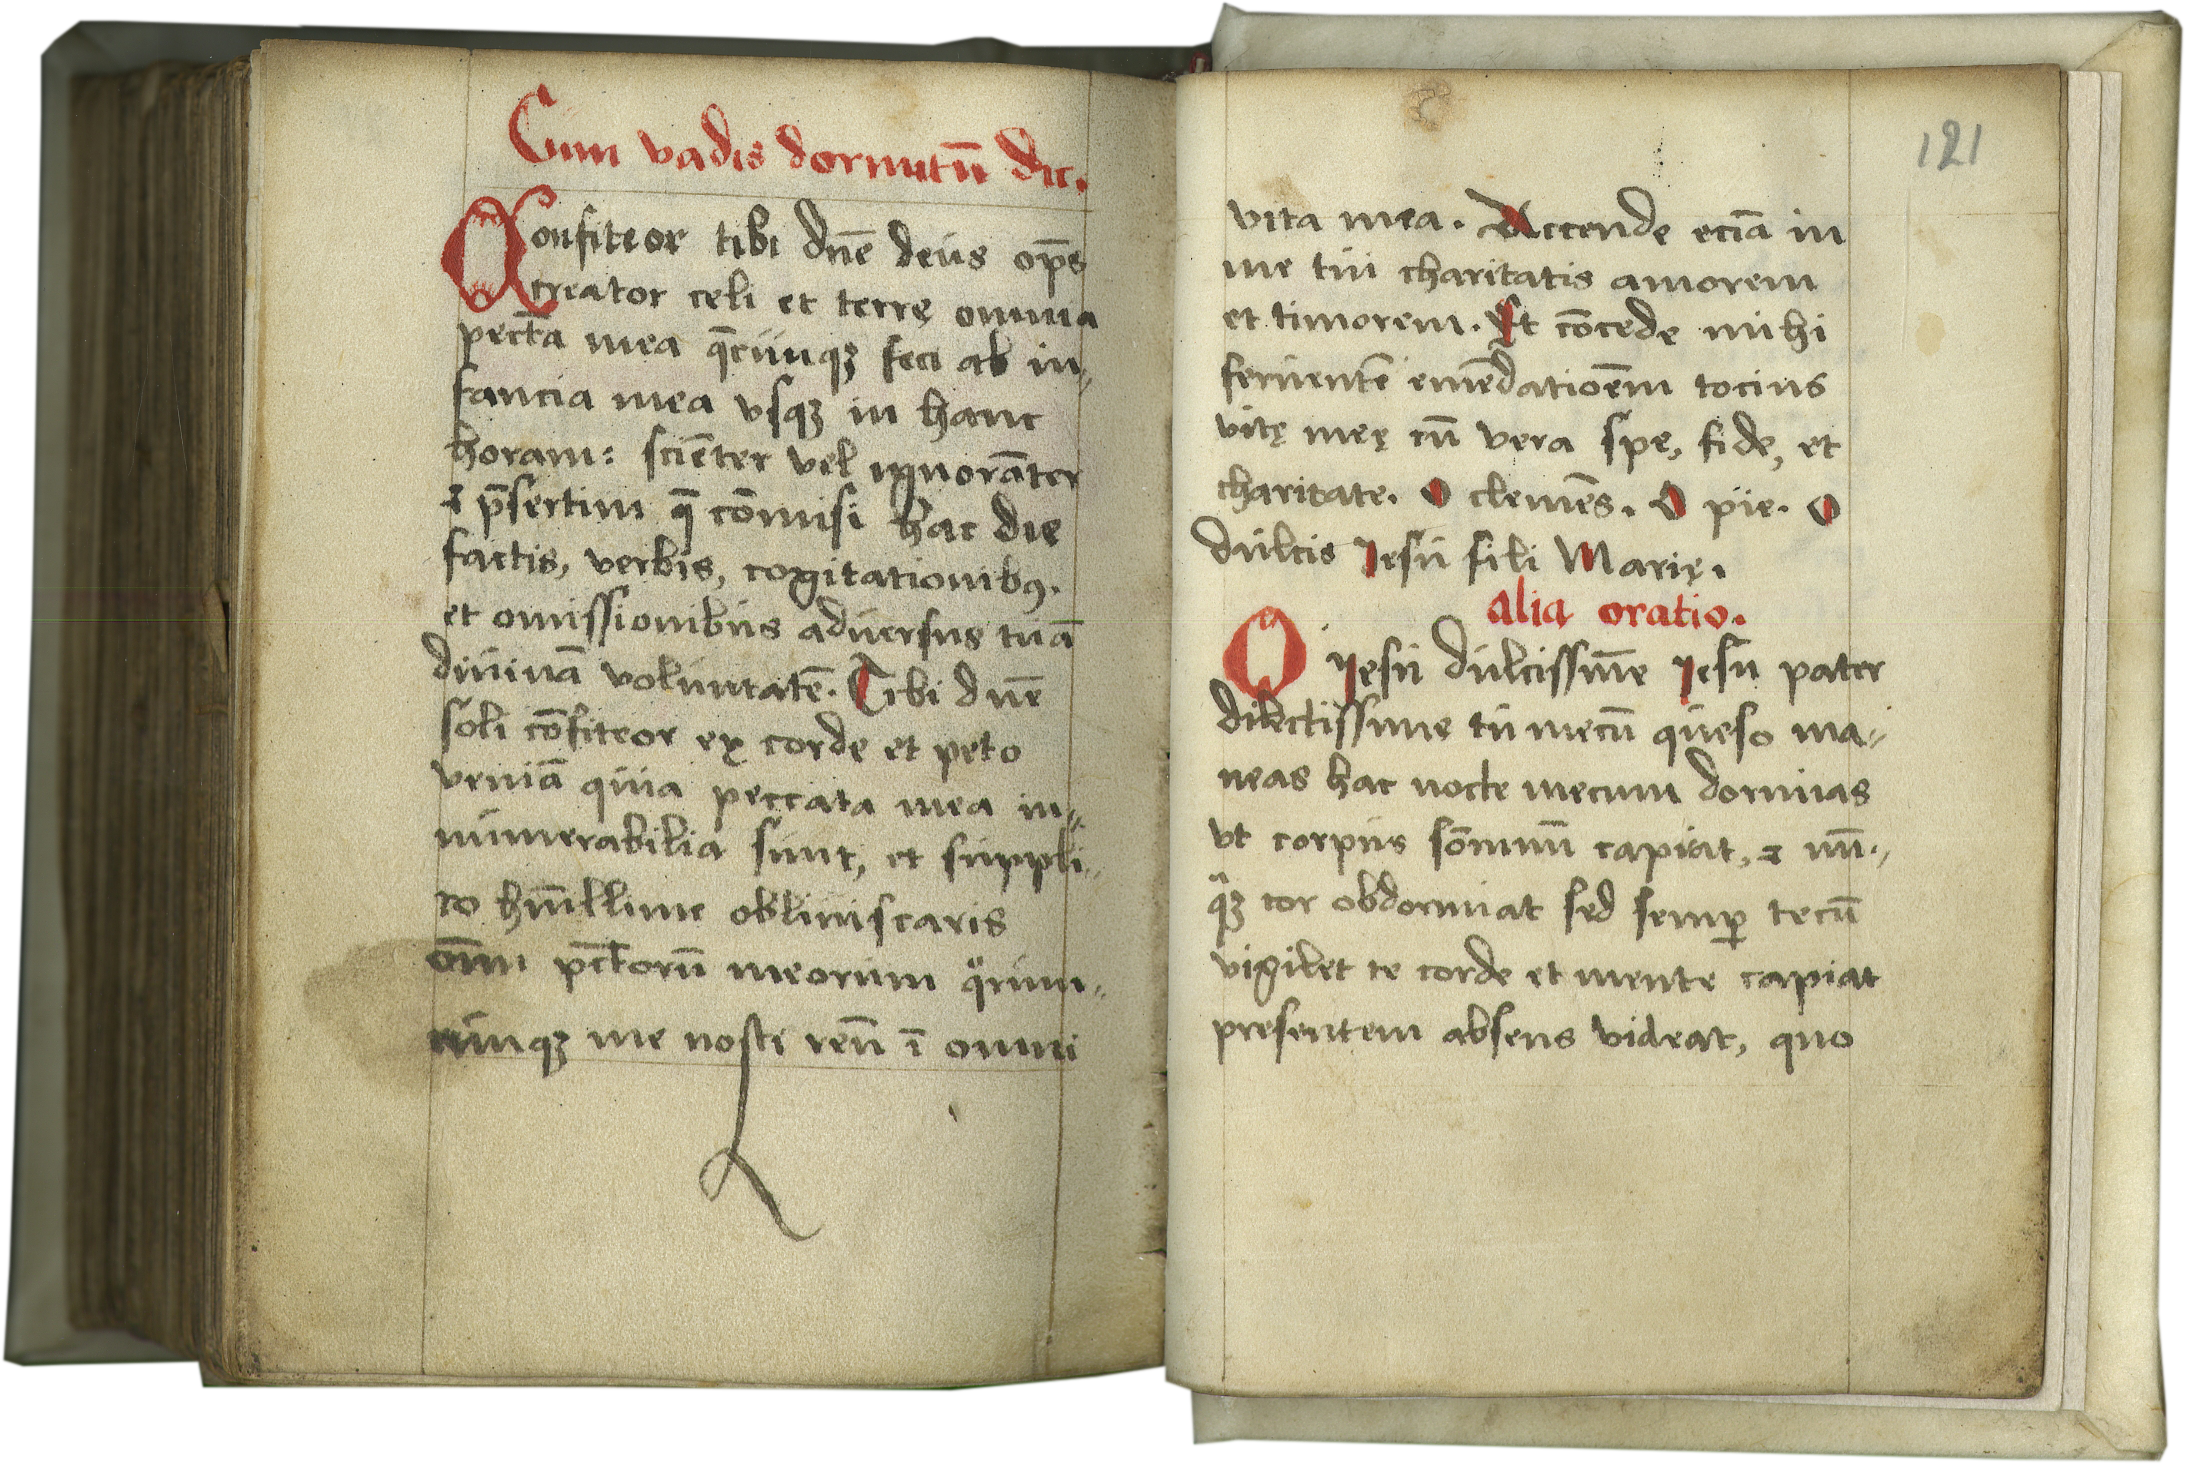 Cum vadis dormitū dic.
Confiteor tibi dn̄e deus op̄s
creator celi et terrę omnia
pecta̅ mea q̄cūnqꝫ feci ab in⸗
fancia mea vsqꝫ in hanc
horam: sciēter vel ignorāter
⁊ p̄sertim q̄ cōmisi hac die
factis, verbis, cogitationibꝰ.
et omissionibus aduersus tuā
diuinā voluntatē. Tibi dn̄e
soli cōfiteor ex corde et peto
veniā quia peccata mea in⸗
numerabilia sunt, et suppli⸗
co hūillime obliuiscaris
om̄i pc̄torū meorum qͦrum⸗
cunqꝫ me nosti reū ī omni
121
vita mea. Accende eciā in
me tui charitatis amorem
et timorem. Et cōcede mihi
feruentē emēdatioēm tocius
vitę meę cū vera spe, fide, et
charitate. O clemēs. O pie. O
dulcis Iesu fili Marię.
alia oratio.
O Iesu dulcissim̄e Iesu pater
dilectissime tu mecū queso ma⸗
neas hac nocte mecum dormias
vt corpus sōmnū capiat, ⁊ nū⸗
qᷓꝫ cor obdormiat sed semꝑ tecū
vigilet te corde et mente capiat
presentem absens videat, quo